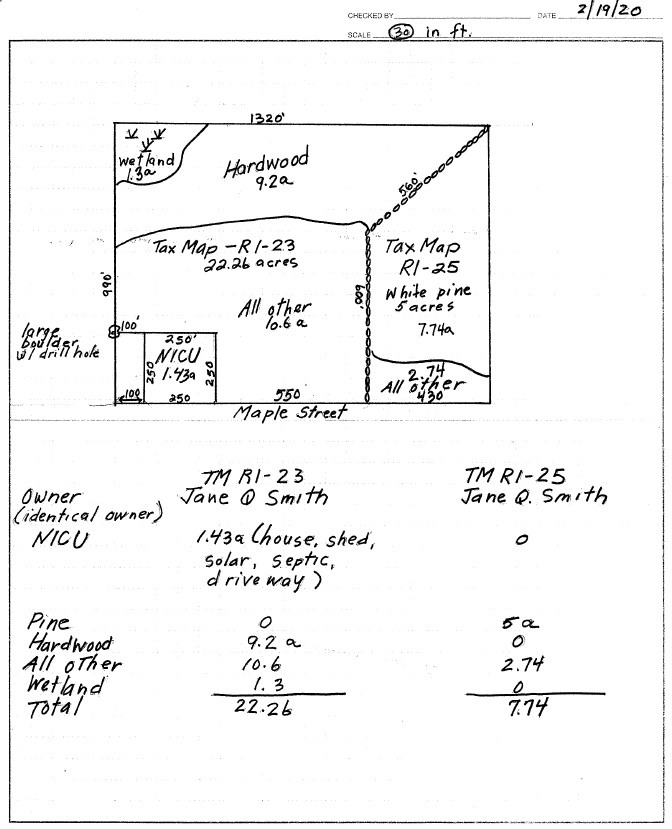 CHECKED BY DATE 2/19/20
SCALE 30 in ft.
1320'
wetland
1.3a
Hardwood
9.2a
560'
Tax Map - R1-23
22.26 acres
Tax Map
R1-25
White pine
5 acres
7.74a
990'
600'
All other
10.6 a
large
boulder
w/ drill hole
100'
250'
NICU
1.43a
250
250
250
100
550
2.74
All other
430
Maple Street
TM R1-23 TM R1-25
Owner Jane Q Smith Jane Q. Smith
(identical owner)
NICU 1.43a (house, shed, 0
solar, septic,
driveway)
Pine 0 5 a
Hardwood 9.2 a 0
All other 10.6 2.74
Wetland 1.3 0
Total 22.26 7.74